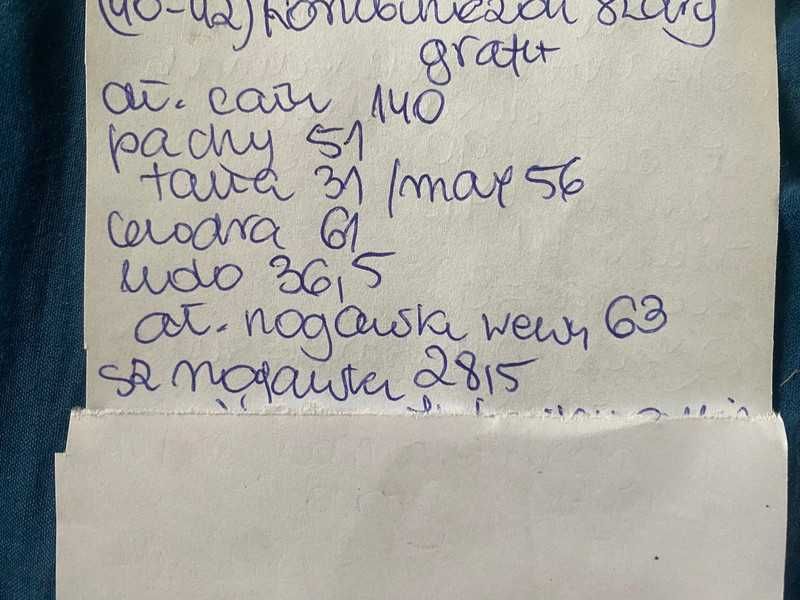 (40-42) kombinezon szary
grafit
dł. całk 140
pachy 51
talia 31 / max 56
biodra 61
udo 36,5
dł. nogawka wewn 63
sz nogawka 28,5